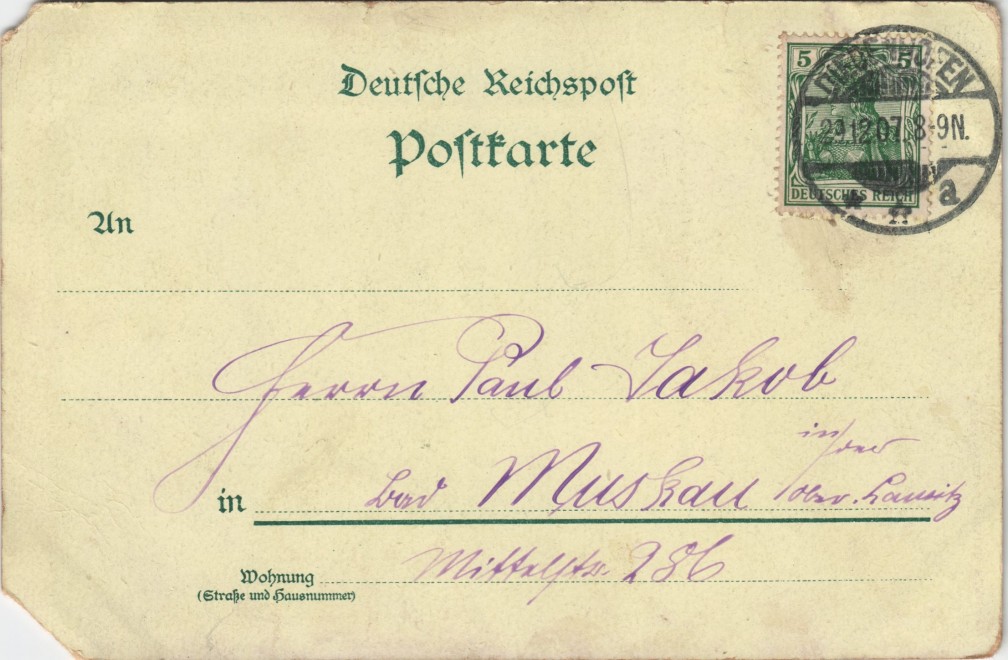 Deutsche Reichspost
Postkarte
5 5
DEUTSCHES REICH
DIEDENHOFEN
29.12.07. 8-9N.
* a
An
Herrn Paul Jakob
in der
in Bad Muskau Ober-Lausitz
Wohnung Mittelstr. 236
(Straße und Hausnummer)